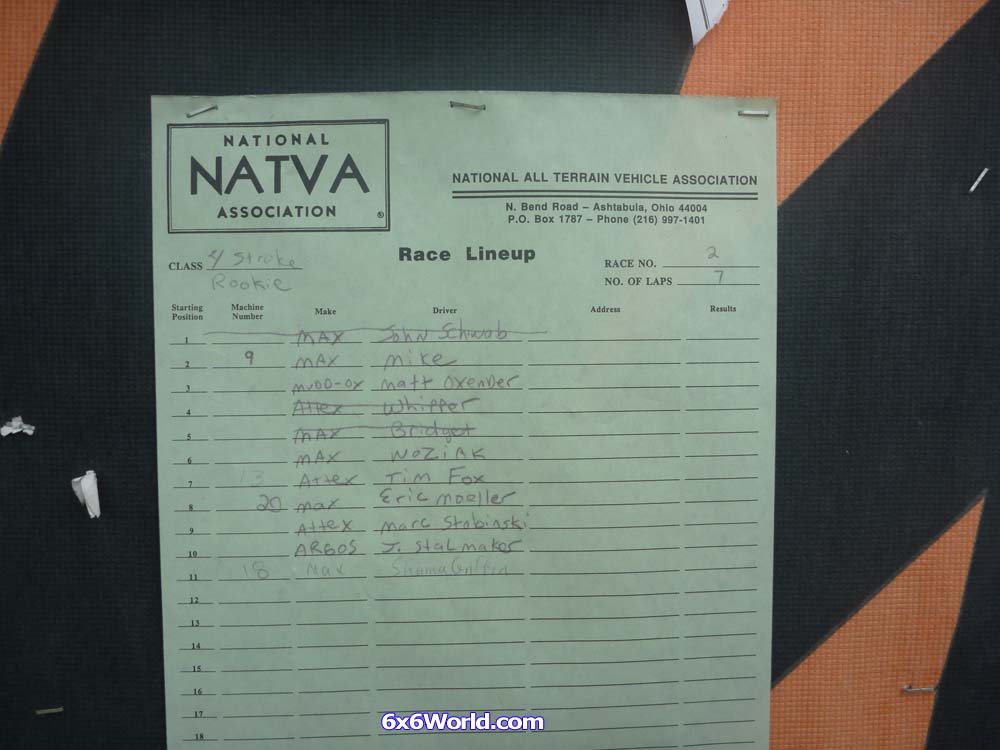 NATIONAL
NATVA
ASSOCIATION
®
NATIONAL ALL TERRAIN VEHICLE ASSOCIATION
N. Bend Road – Ashtabula, Ohio 44004
P.O. Box 1787 – Phone (216) 997-1401
Race Lineup
CLASS 4 Stroke
Rookie
RACE NO. 2
NO. OF LAPS 7
Starting Position Machine Number Make Driver Address Results
1 MAX John Schwab
2 9 MAX Mike
3 MUDD-OX Matt Oxender
4 Attex Whipper
5 MAX Bridget
6 MAX WOZIAK
7 13 Attex Tim Fox
8 20 max Eric Moeller
9 Attex Marc Stobinski
10 ARGOS J. Stalmaker
11 18 Max
12
13
14
15
16
17
18
6x6World.com